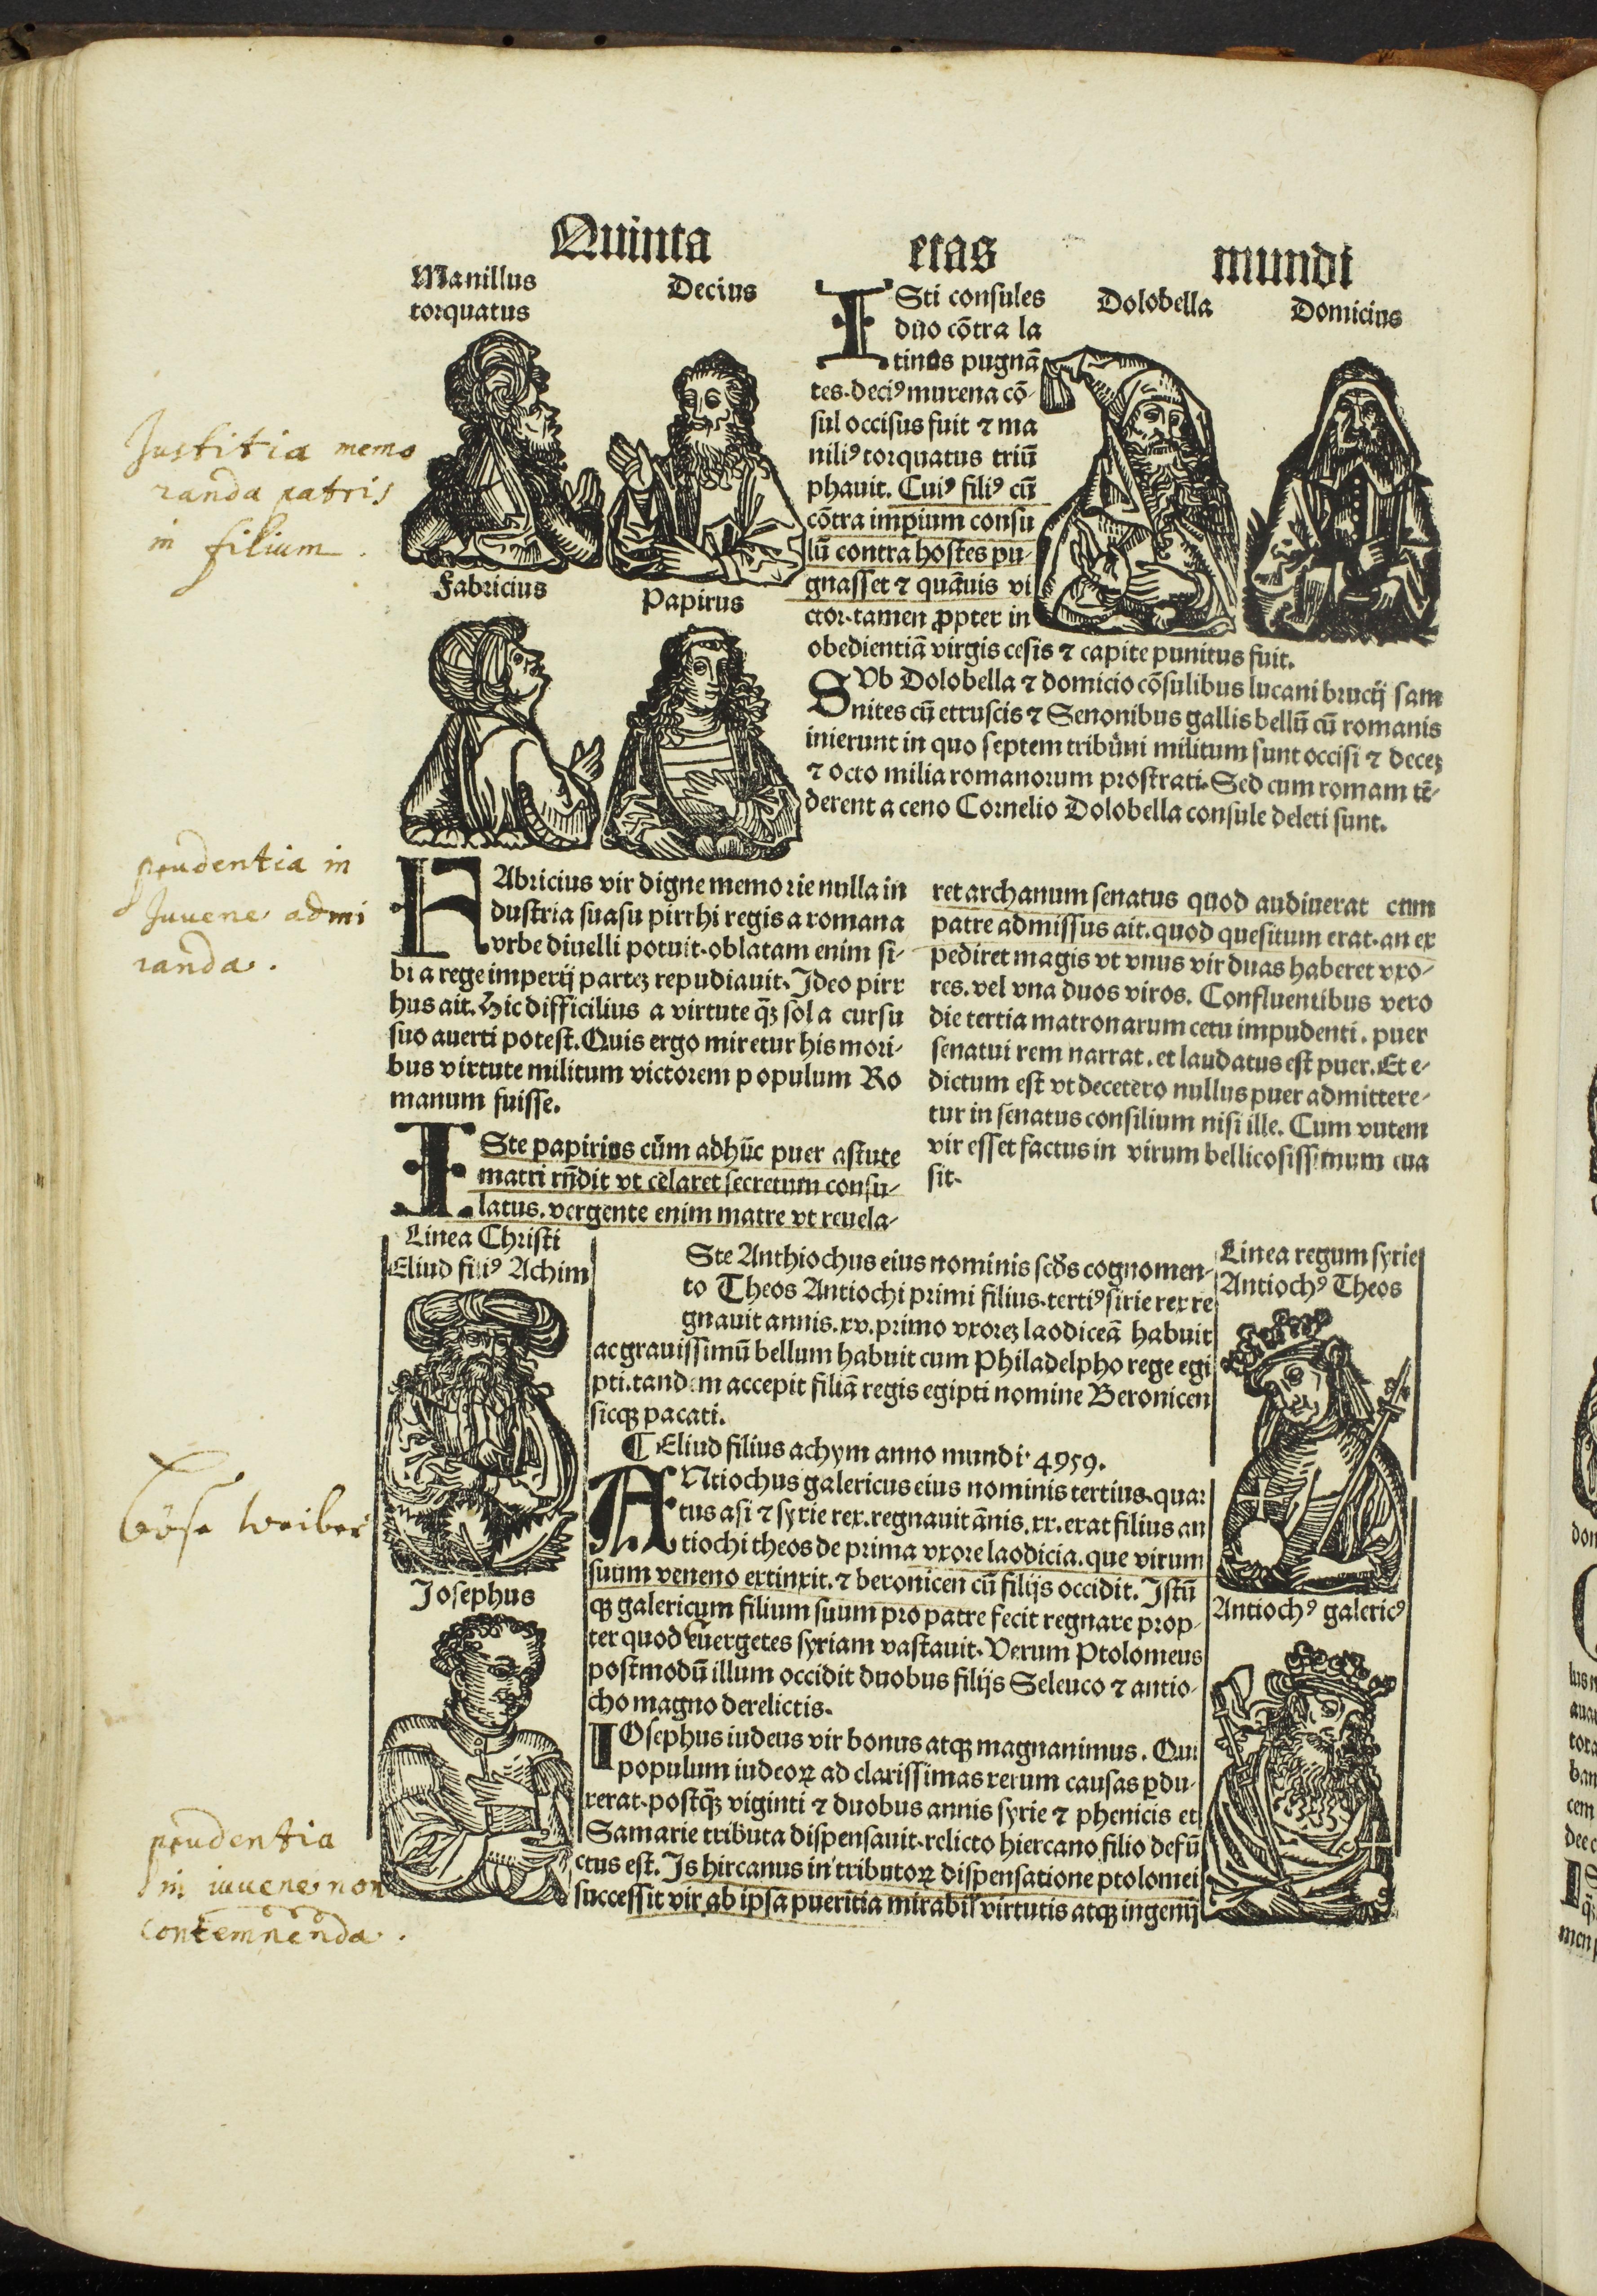 Quinta etas mundi
Manillus
torquatus
Decius
ISti consules
duo cōtra la
tinos pugnā
tes.deciꝰ murena cō-
sul occisus fuit ⁊ ma
niliꝰ torquatus triū
phauit. Cuiꝰ filiꝰ cū
cōtra imperium consu
lū contra hostes pu-
gnasset ⁊ quāuis vi
ctor.tamen ꝓpter in
obedientiā virgis cesis ⁊ capite punitus fuit.
Dolobella
Domicius
Justitia memo
randa patris
in filium.
Fabricius
Papirus
SVb Dolobella ⁊ domicio cōsulibus lucani brucij sam
nites cū etruscis ⁊ Senonibus gallis bellū cū romanis
inierunt in quo septem tribūni militum sunt occisi ⁊ decez
⁊ octo milia romanorum prostrati. Sed cum romam tē-
derent a ceno Cornelio Dolobella consule deleti sunt.
prudentia in
Juuene admi
randa.
FAbricius vir digne memorie nulla in
dustria suasu pirrhi regis a romana
vrbe diuelli potuit.oblatam enim si-
bi a rege imperij partez repudiauit. Ideo pirr
hus ait. Hic difficilius a virtute qꝫ sol a cursu
suo auerti potest. Quis ergo miretur his mori-
bus virtute militum victorem populum Ro
manum fuisse.
ISte papirius cūm adhūc puer astute
matri rn̄dit vt celaret secretum consu-
latus. vergente enim matre vt reuela-
ret archanum senatus quod audiuerat cum
patre admissus ait. quod quesitum erat.an ex
pediret magis vt vnus vir duas haberet vxo-
res.vel vna duos viros. Confluentibus vero
die tertia matronarum cetu impudenti. puer
senatui rem narrat. et laudatus est puer. Et e-
dictum est vt decetero nullus puer admittere-
tur in senatus consilium nisi ille. Cum vutem
vir esset factus in virum bellicosissimum eua
sit.
Linea Christi
Eliud filiꝰ Achim
Ste Anthiochus eius nominis scds cognomen-
to Theos Antiochi primi filius.tertiꝰ sirie rex re
gnauit annis.xv.primo vxorez laodiceā habuit
ac grauissimū bellum habuit cum Philadelpho rege egi
pti.tandem accepit filiā regis egipti nomine Beronicen
sicqꝫ pacati.
¶ Eliud filius achym anno mundi 4959.
Linea regum syrie
Antiochꝰ Theos
böse weiber
ANtiochus galericus eius nominis tertius.quar
tus asi ⁊ syrie rex.regnauit ānis.xx.erat filius an
tiochi theos de prima vxore laodicia.que virum
suum veneno extinxit.⁊ beronicen cū filijs occidit. Istū
qꝫ galericum filium suum pro patre fecit regnare prop-
ter quod euergetes syriam vastauit. Verum Ptolomeus
postmodū illum occidit duobus filijs Seleuco ⁊ antio-
cho magno derelictis.
Josephus
Antiochꝰ galericꝰ
IOsephus iudeus vir bonus atqꝫ magnanimus. Qui
populum iudeoꝝ ad clarissimas rerum causas ꝑdu-
xerat.postqꝫ viginti ⁊ duobus annis syrie ⁊ phenicis et
Samarie tributa dispensauit.relicto hiercano filio defū
ctus est. Is hircanus in tributoꝝ dispensatione ptolomei
successit vir ab ipsa pueritia mirabil virtutis atqꝫ ingenij
prudentia
in iuuene non
contemnenda.